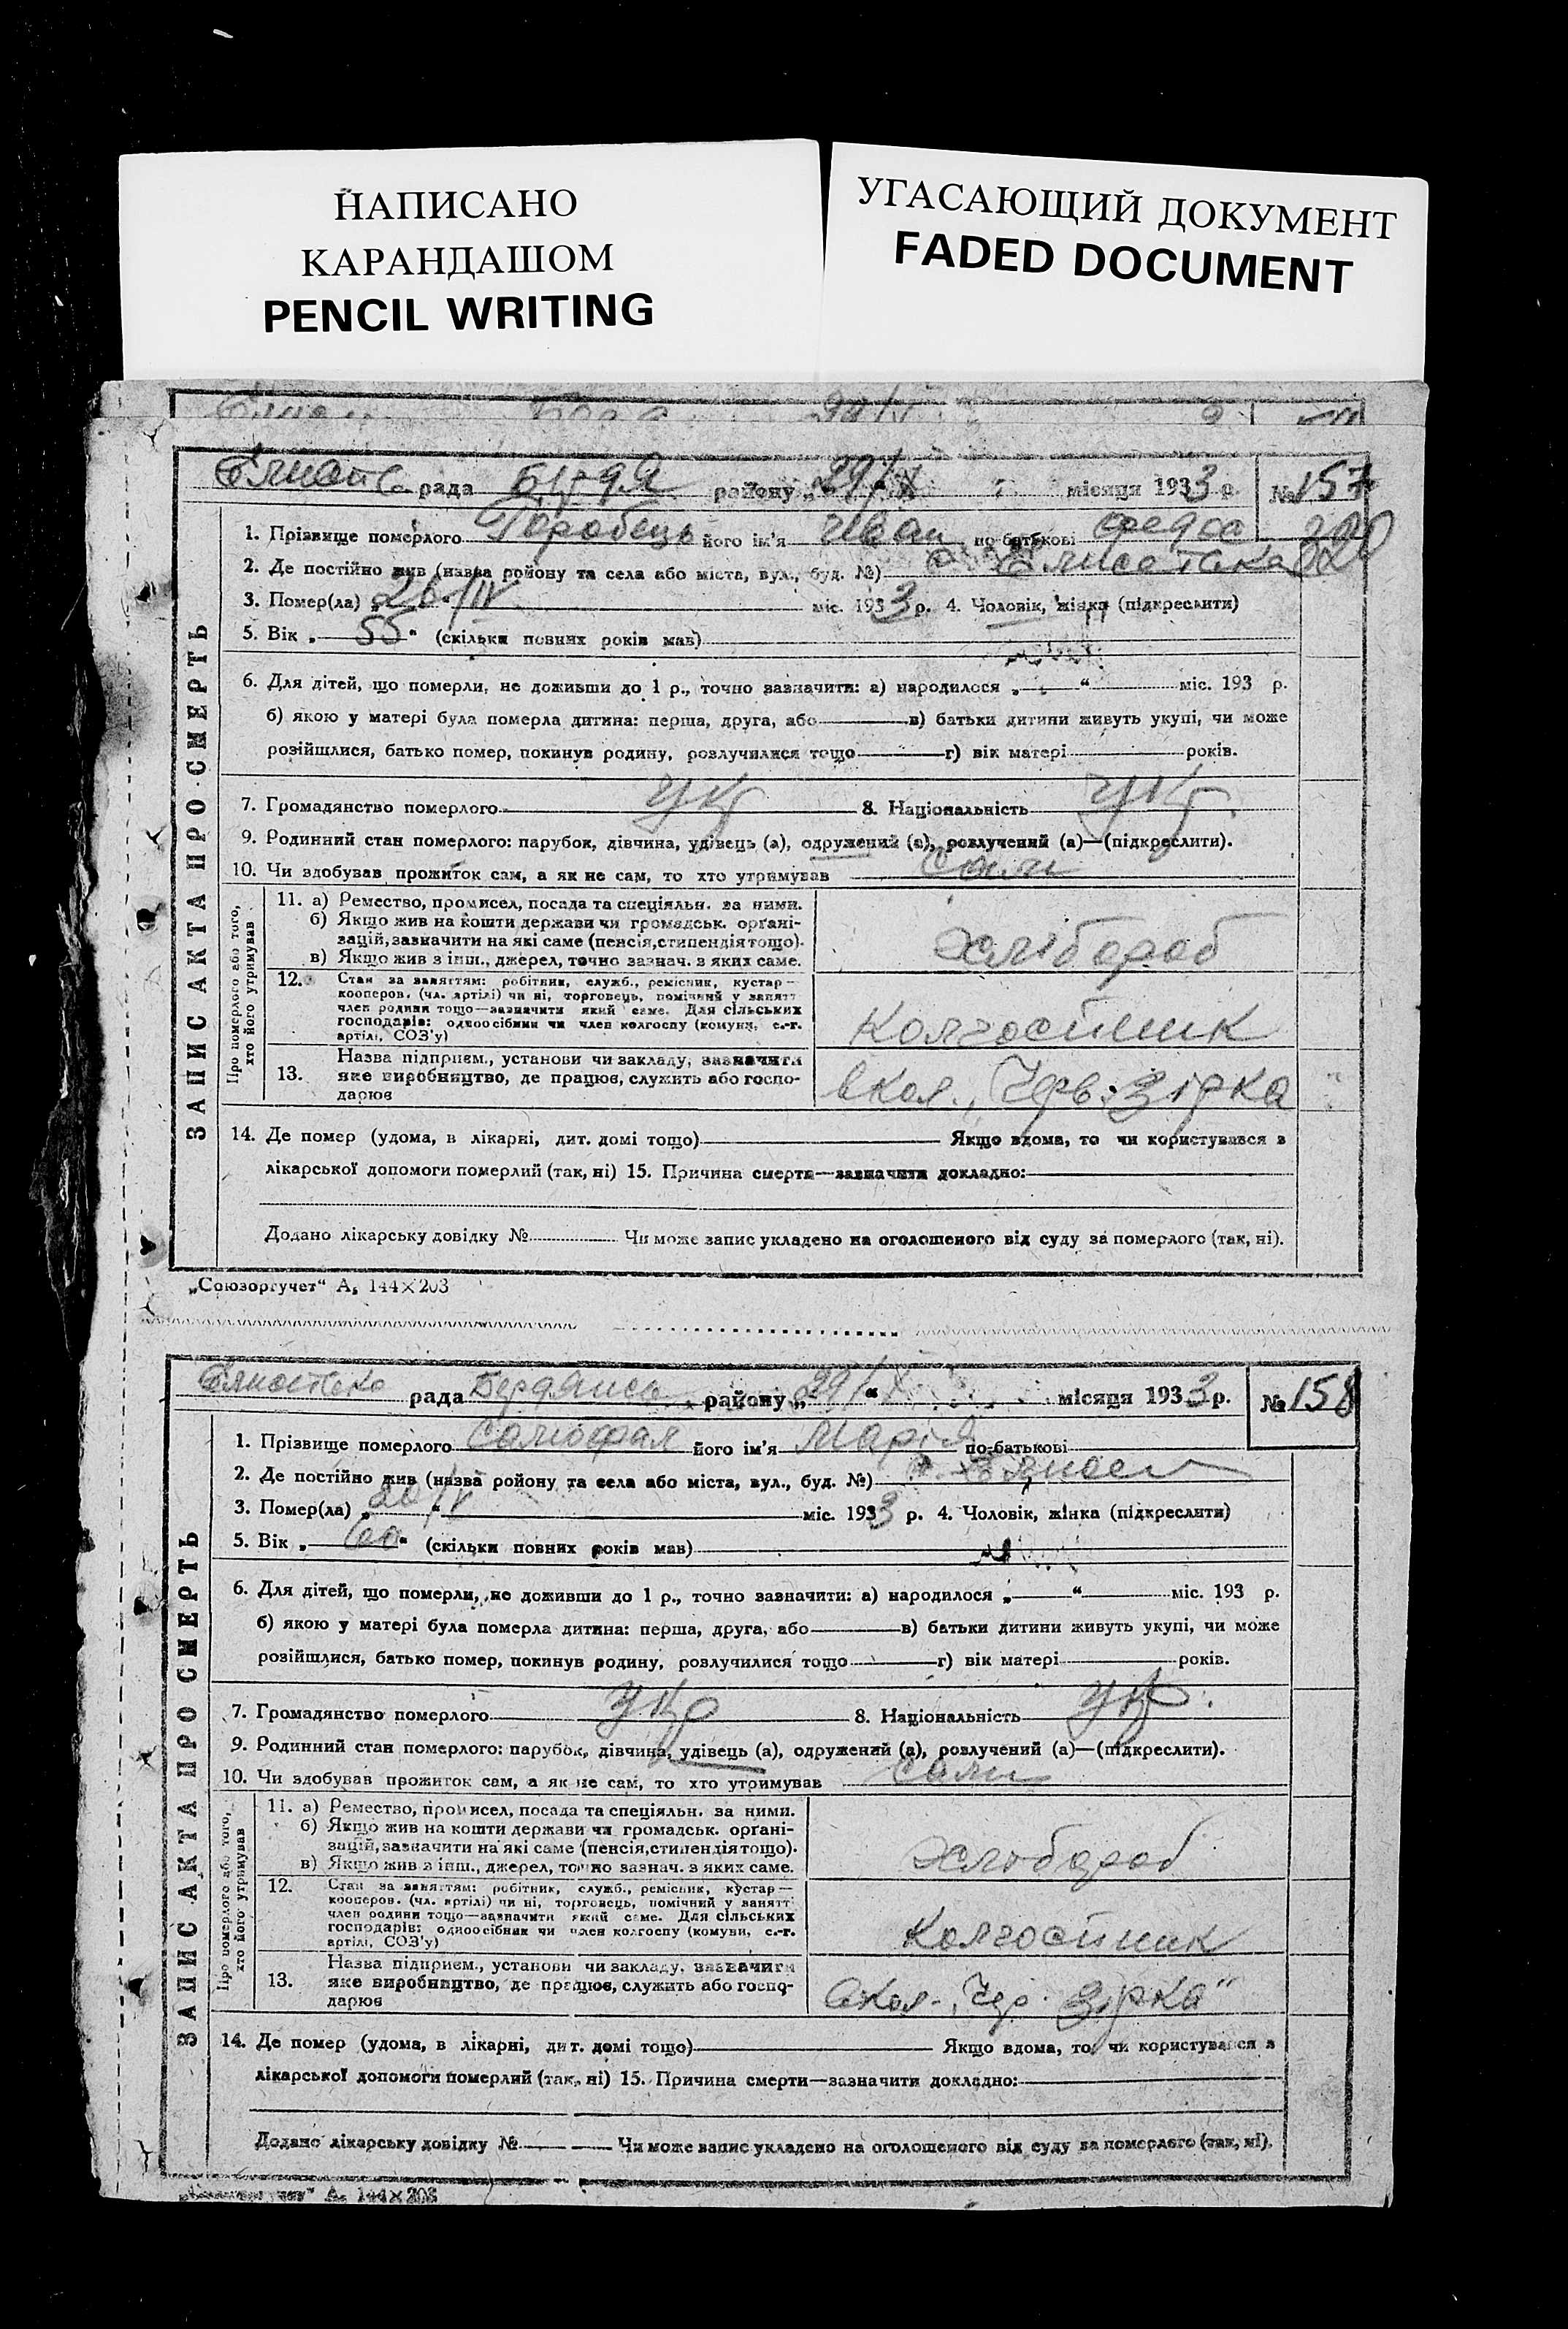 НАПИСАНО
КАРАНДАШОМ
PENCIL WRITING
УГАСАЮЩИЙ ДОКУМЕНТ
FADED DOCUMENT
рада району „29/ місяця 1933 р. № 157
1. Прізвище померлого Горобець його ім'я Іван по батькові
2. Де постійно жив (назва ройону та села або міста, вул., буд. №)
3. Помер(ла) „26/IV міс. 1933 р. 4. Чоловік, жінка (підкреслити)
5. Вік „55“ (скільки повних років мав)
6. Для дітей, що померли, не доживши до 1 р., точно зазначити: а) народилося „ “ міс. 193 р.
б) якою у матері була померла дитина: перша, друга, або в) батьки дитини живуть укупі, чи може
розійшлися, батько помер, покинув родину, розлучилися тощо г) вік матері років.
7. Громадянство померлого укр 8. Національність укр.
9. Родинний стан померлого: парубок, дівчина, удівець (а), одружений (а), розлучений (а)—(підкреслити).
10. Чи здобував прожиток сам, а як не сам, то хто утримував сам
ЗАПИС АКТА ПРО СМЕРТЬ
Про померлого або того,
хто його утримував
11. а) Ремество, промисел, посада та спеціяльн. за ними.
б) Якщо жив на кошти держави чи громадськ. органі-
зацій, зазначити на які саме (пенсія, стипендія тощо).
в) Якщо жив з інш., джерел, точно зазнач. з яких саме.
хлібороб
12. Стан за заняттям: робітник, служб., ремісник, кустар—
кооперов. (чл. артілі) чи ні, торговець, помічний у занятт
член родини тощо—зазначити який саме. Для сільських
господарів: одноосібник чи член колгоспу (комуни, с.-г.
артілі, СОЗ'у)
Колгоспник
13. Назва підприєм., установи чи закладу, зазначити
яке виробництво, де працює, служить або госпо-
дарює
в кол. „Черв. Зірка
14. Де помер (удома, в лікарні, дит. домі тощо) Якщо вдома, то чи користувався з
лікарської допомоги померлий (так, ні) 15. Причина смерти—зазначити докладно:
Додано лікарську довідку № Чи може запис укладено на оголошеного від суду за померлого (так, ні).
„Союзоргучет“ А₅ 144×203
рада Бердянсь району „29/ “ місяця 1933 р. № 158
1. Прізвище померлого його ім'я Марія по-батькові
2. Де постійно жив (назва ройону та села або міста, вул., буд. №)
3. Помер(ла) „ “ міс. 1933 р. 4. Чоловік, жінка (підкреслити)
5. Вік „60“ (скільки повних років мав)
6. Для дітей, що померли, не доживши до 1 р., точно зазначити: а) народилося „ “ міс. 193 р.
б) якою у матері була померла дитина: перша, друга, або в) батьки дитини живуть укупі, чи може
розійшлися, батько помер, покинув родину, розлучилися тощо г) вік матері років.
7. Громадянство померлого укр 8. Національність укр.
9. Родинний стан померлого: парубок, дівчина, удівець (а), одружений (а), розлучений (а)—(підкреслити).
10. Чи здобував прожиток сам, а як не сам, то хто утримував сам
ЗАПИС АКТА ПРО СМЕРТЬ
Про померлого або того,
хто його утримував
11. а) Ремество, промисел, посада та спеціяльн. за ними.
б) Якщо жив на кошти держави чи громадськ. органі-
зацій, зазначити на які саме (пенсія, стипендія тощо).
в) Якщо жив з інш., джерел, точно зазнач. з яких саме.
хлібороб
12. Стан за заняттям: робітник, служб., ремісник, кустар—
кооперов. (чл. артілі) чи ні, торговець, помічний у занятт
член родини тощо—зазначити який саме. Для сільських
господарів: одноосібник чи член колгоспу (комуни, с.-г.
артілі, СОЗ'у)
Колгоспник
13. Назва підприєм., установи чи закладу, зазначити
яке виробництво, де працює, служить або госпо-
дарює
кол. „Чер. Зірка"
14. Де помер (удома, в лікарні, дит. домі тощо) Якщо вдома, то чи користувався з
лікарської допомоги померлий (так, ні) 15. Причина смерти—зазначити докладно:
Додано лікарську довідку № Чи може запис укладено на оголошеного від суду за померлого (так, ні).
А₅ 144×203